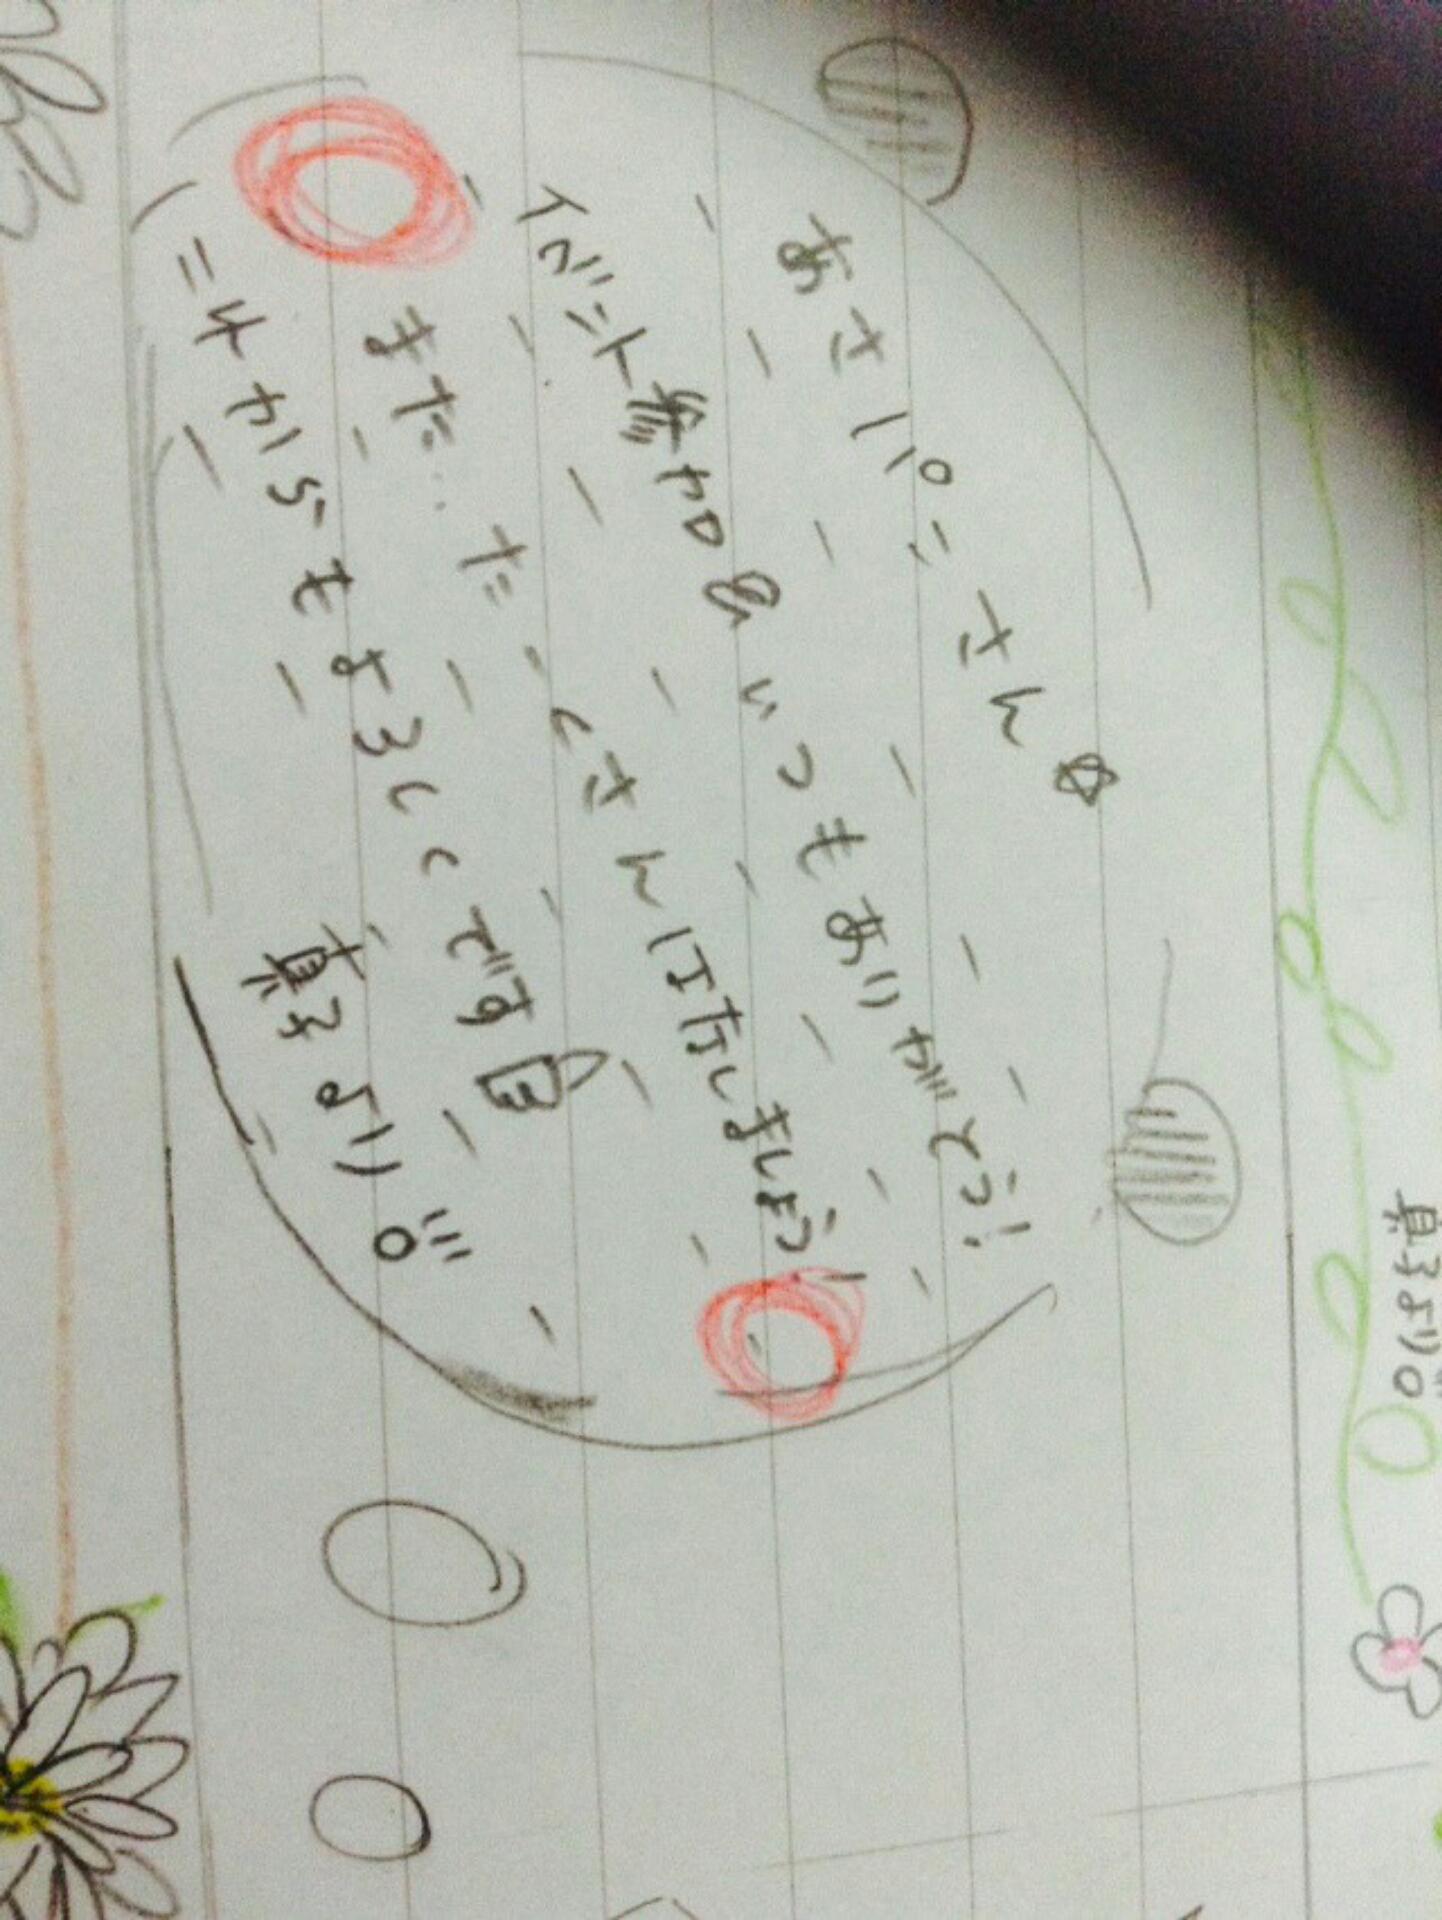 さん☆
イベント参加&いつもありがとう!
まだ‥たーくさんはなしましょう!
これからもよろしくです
真子より
真子より